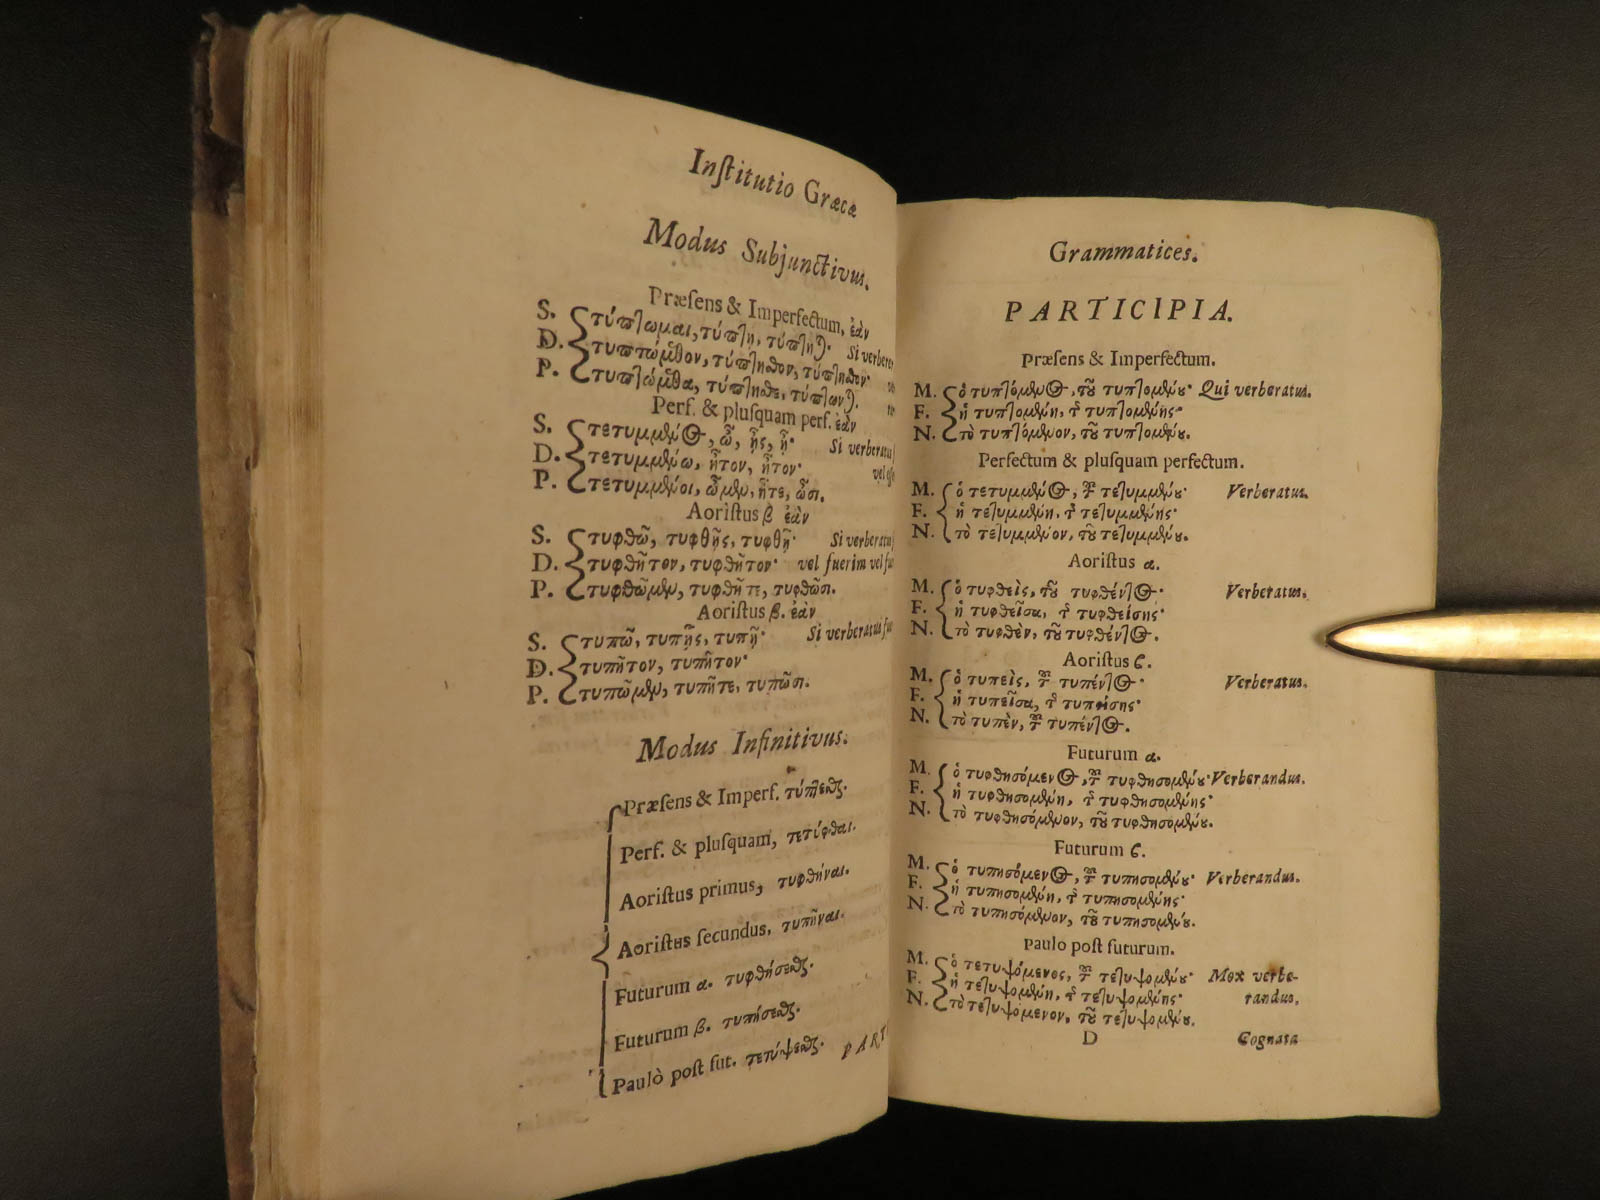 Inſtitutio Græcæ
Modus Subjunctivus.
Præſens & Imperfectum, ἐὰν
S. τύπτωμαι, τύπτῃ, τύπτηται. Si verberer
D. τυπτώμεθον, τύπτησθον, τύπτησθον·
P. τυπτώμεθα, τύπτησθε, τύπτωνται.
Perf. & pluſquam perf. ἐὰν
S. τετυμμένος, ὦ, ᾖς, ᾖ· Si verberatus
D. τετυμμένω, ἦτον, ἦτον· vel eſſe
P. τετυμμένοι, ὦμεν, ἦτε, ὦσι.
Aoriſtus β ἐὰν
S. τυφθῶ, τυφθῇς, τυφθῇ· Si verberatus
D. τυφθῆτον, τυφθῆτον· vel fuerim vel
P. τυφθῶμεν, τυφθῆτε, τυφθῶσι.
Aoriſtus β. ἐὰν
S. τυπῶ, τυπῇς, τυπῇ· Si verberatus
D. τυπῆτον, τυπῆτον·
P. τυπῶμεν, τυπῆτε, τυπῶσι.
Modus Infinitivus.
Præſens & Imperf. τύπτεσθαι.
Perf. & pluſquam, τετύφθαι.
Aoriſtus primus, τυφθῆναι.
Aoriſtus ſecundus, τυπῆναι.
Futurum α. τυφθήσεσθαι.
Futurum β. τυπήσεσθαι.
Paulò poſt fut. τετύψεσθαι.
PART
Grammatices.
PARTICIPIA.
Præſens & Imperfectum.
M. ὁ τυπτόμενος, τοῦ τυπτομένου· Qui verberatus.
F. ἡ τυπτομένη, τῆς τυπτομένης·
N. τὸ τυπτόμενον, τοῦ τυπτομένου.
Perfectum & pluſquam perfectum.
M. ὁ τετυμμένος, τοῦ τετυμμένου· Verberatus.
F. ἡ τετυμμένη, τῆς τετυμμένης·
N. τὸ τετυμμένον, τοῦ τετυμμένου.
Aoriſtus α.
M. ὁ τυφθεὶς, τοῦ τυφθέντος· Verberatus.
F. ἡ τυφθεῖσα, τῆς τυφθείσης·
N. τὸ τυφθὲν, τοῦ τυφθέντος.
Aoriſtus ϐ.
M. ὁ τυπεὶς, τοῦ τυπέντος· Verberatus.
F. ἡ τυπεῖσα, τῆς τυπείσης·
N. τὸ τυπὲν, τοῦ τυπέντος.
Futurum α.
M. ὁ τυφθησόμενος, τοῦ τυφθησομένου· Verberandus.
F. ἡ τυφθησομένη, τῆς τυφθησομένης·
N. τὸ τυφθησόμενον, τοῦ τυφθησομένου.
Futurum ϐ.
M. ὁ τυπησόμενος, τοῦ τυπησομένου· Verberandus.
F. ἡ τυπησομένη, τῆς τυπησομένης·
N. τὸ τυπησόμενον, τοῦ τυπησομένου.
Paulo poſt futurum.
M. ὁ τετυψόμενος, τοῦ τετυψομένου· Mox verbe-
F. ἡ τετυψομένη, τῆς τετυψομένης· randus.
N. τὸ τετυψόμενον, τοῦ τετυψομένου.
D Cognata